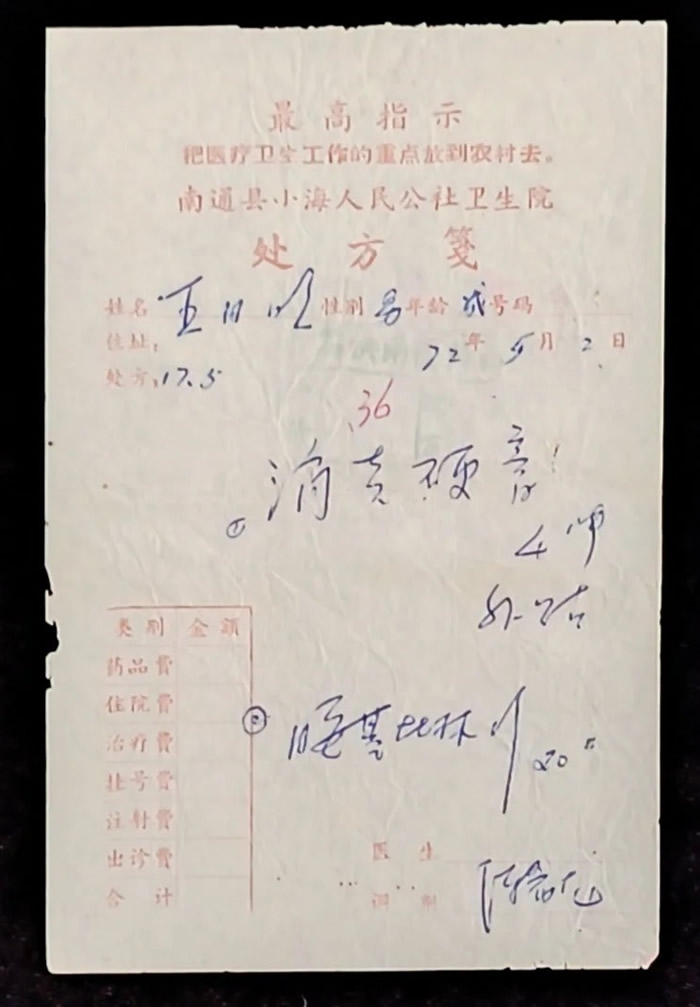 最高指示
把医疗卫生工作的重点放到农村去。
南通县小海人民公社卫生院
处方笺
姓名 王 性别 男 年龄 成 号码
住址: 72年5月2日
处方: 17.5
36
① 消炎硬膏
4
外贴
② 匹林 20
类别 金额
药品费
住院费
治疗费
挂号费
注射费
出诊费
合计
医生
调剂